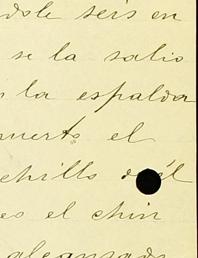 dole seis en
se la salio
la espalda
muerto el
chillo d él
es el chin
alcansado